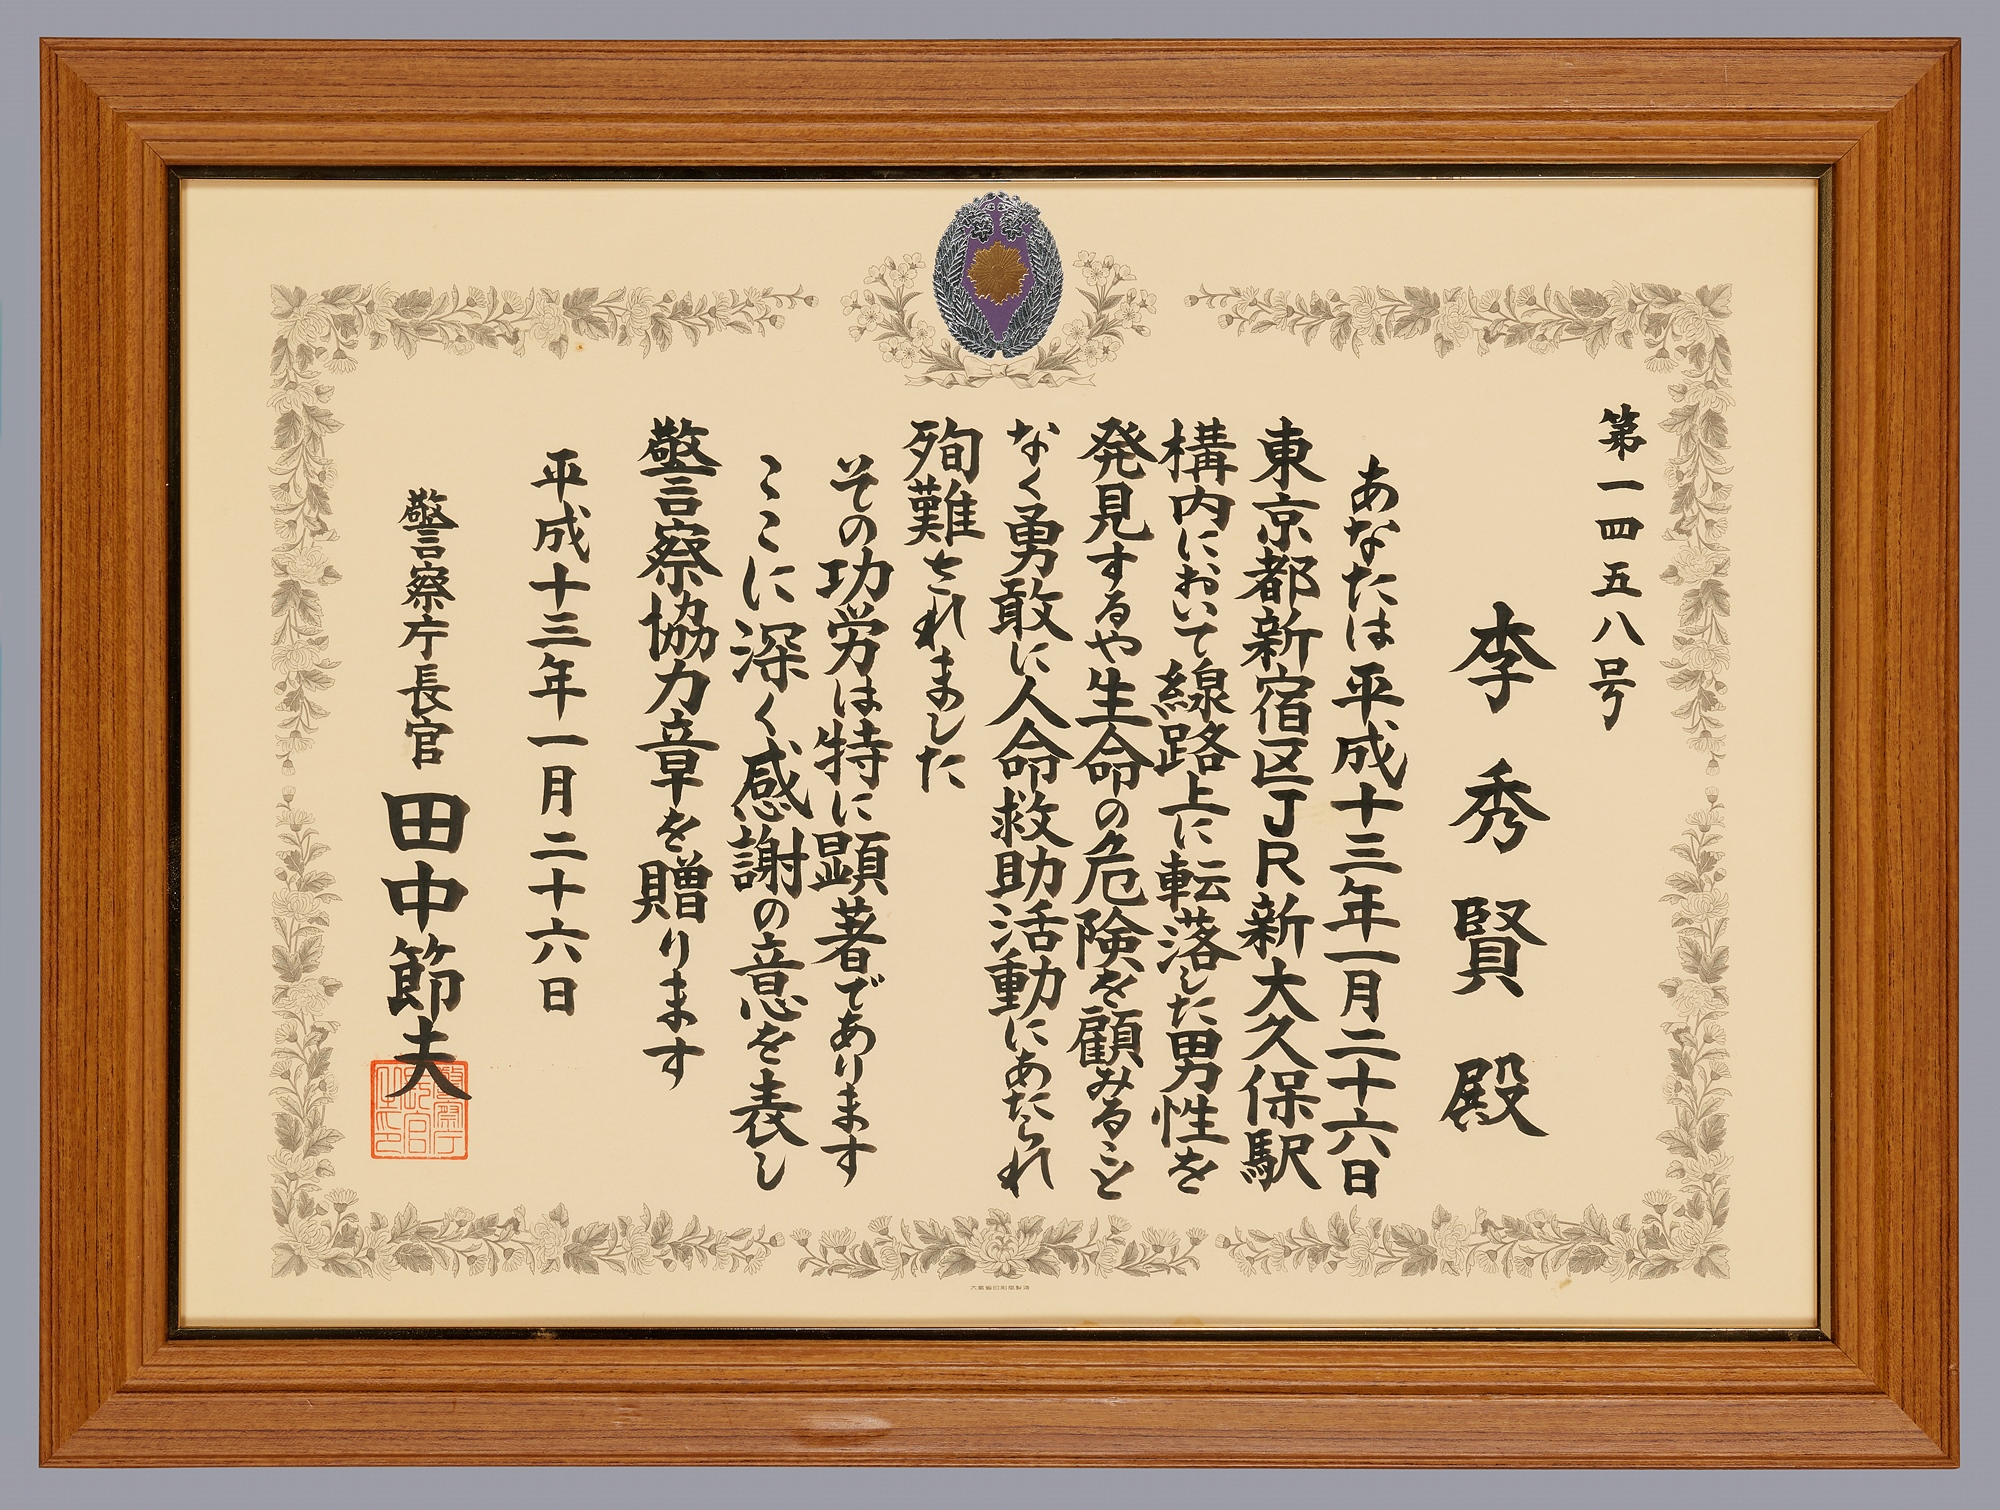 第一四五八号
李秀賢殿
あなたは平成十三年一月二十六日
東京都新宿区JR新大久保駅
構内において線路上に転落した男性を
発見するや生命の危険を顧みること
なく勇敢に人命救助活動にあたられ
殉難されました
その功労は特に顕著であります
ここに深く感謝の意を表し
警察協力章を贈ります
平成十三年一月二十六日
警察庁長官 田中節夫
警察庁長官之印
大蔵省印刷局製造